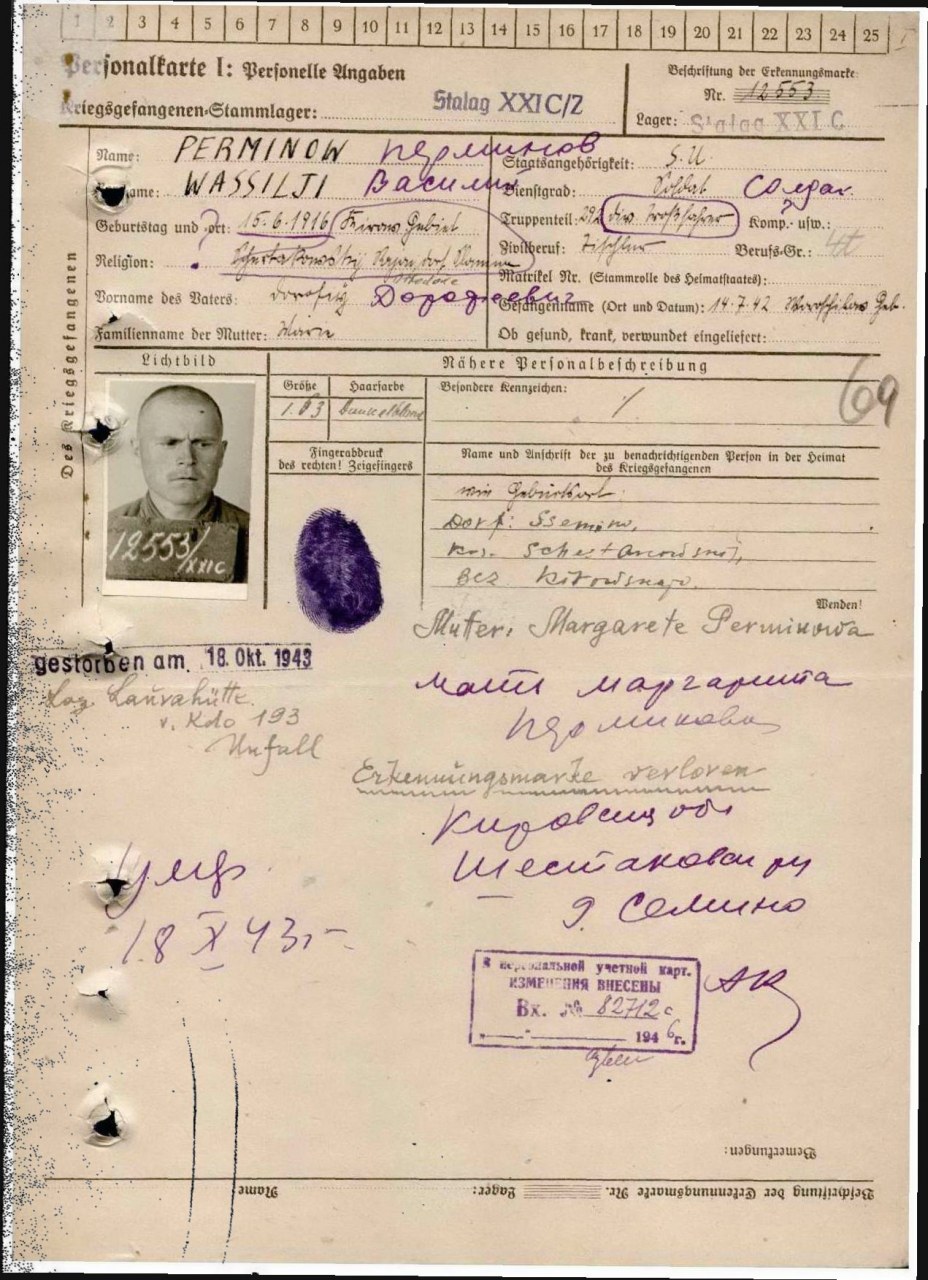 1 2 3 4 5 6 7 8 9 10 11 12 13 14 15 16 17 18 19 20 21 22 23 24 25
Personalkarte I: Personelle Angaben
Kriegsgefangenen-Stammlager: Stalag XXI C/Z
Beschriftung der Erkennungsmarke:
Nr. 12553
Lager: Stalag XXI C
Des Kriegsgefangenen
Name: PERMINOW Перминов
Vorname: WASSILJI Василий
Geburtstag und -ort: 15.6.1916 Kirow Gebiet
Religion:
Vorname des Vaters: Дорофеевич
Familienname der Mutter:
Staatsangehörigkeit: S.U.
Dienstgrad: Soldat Солдат
Truppenteil: 292 Div. Troßfahrer Komp. usw.:
Zivilberuf: Tischler Berufs-Gr.:
Matrikel Nr. (Stammrolle des Heimatstaates):
Gefangennahme (Ort und Datum): 14.7.42
Ob gesund, krank, verwundet eingeliefert:
Lichtbild
Nähere Personalbeschreibung
Größe Haarfarbe Besondere Kennzeichen:
1.63 /
69
Fingerabdruck
des rechten! Zeigefingers
Name und Anschrift der zu benachrichtigenden Person in der Heimat
des Kriegsgefangenen
wie Geburtsort:
Dorf: Ssemino,
12553/XXIC
Wenden!
Mutter: Margarete Perminowa
gestorben am 18. Okt. 1943
Laz. Laurahütte
v. Kdo 193
Unfall
мать Маргарита
Перминова
Erkennungsmarke verloren
Кировск. обл
Шестаковск. р-н
д. Семино
умер
18 X 43 г.
В персональной учетной карт.
ИЗМЕНЕНИЯ ВНЕСЕНЫ
Вх. № 82712с
194 6 г.
Bemerkungen:
Beschriftung der Erkennungsmarke Nr. Lager: Name